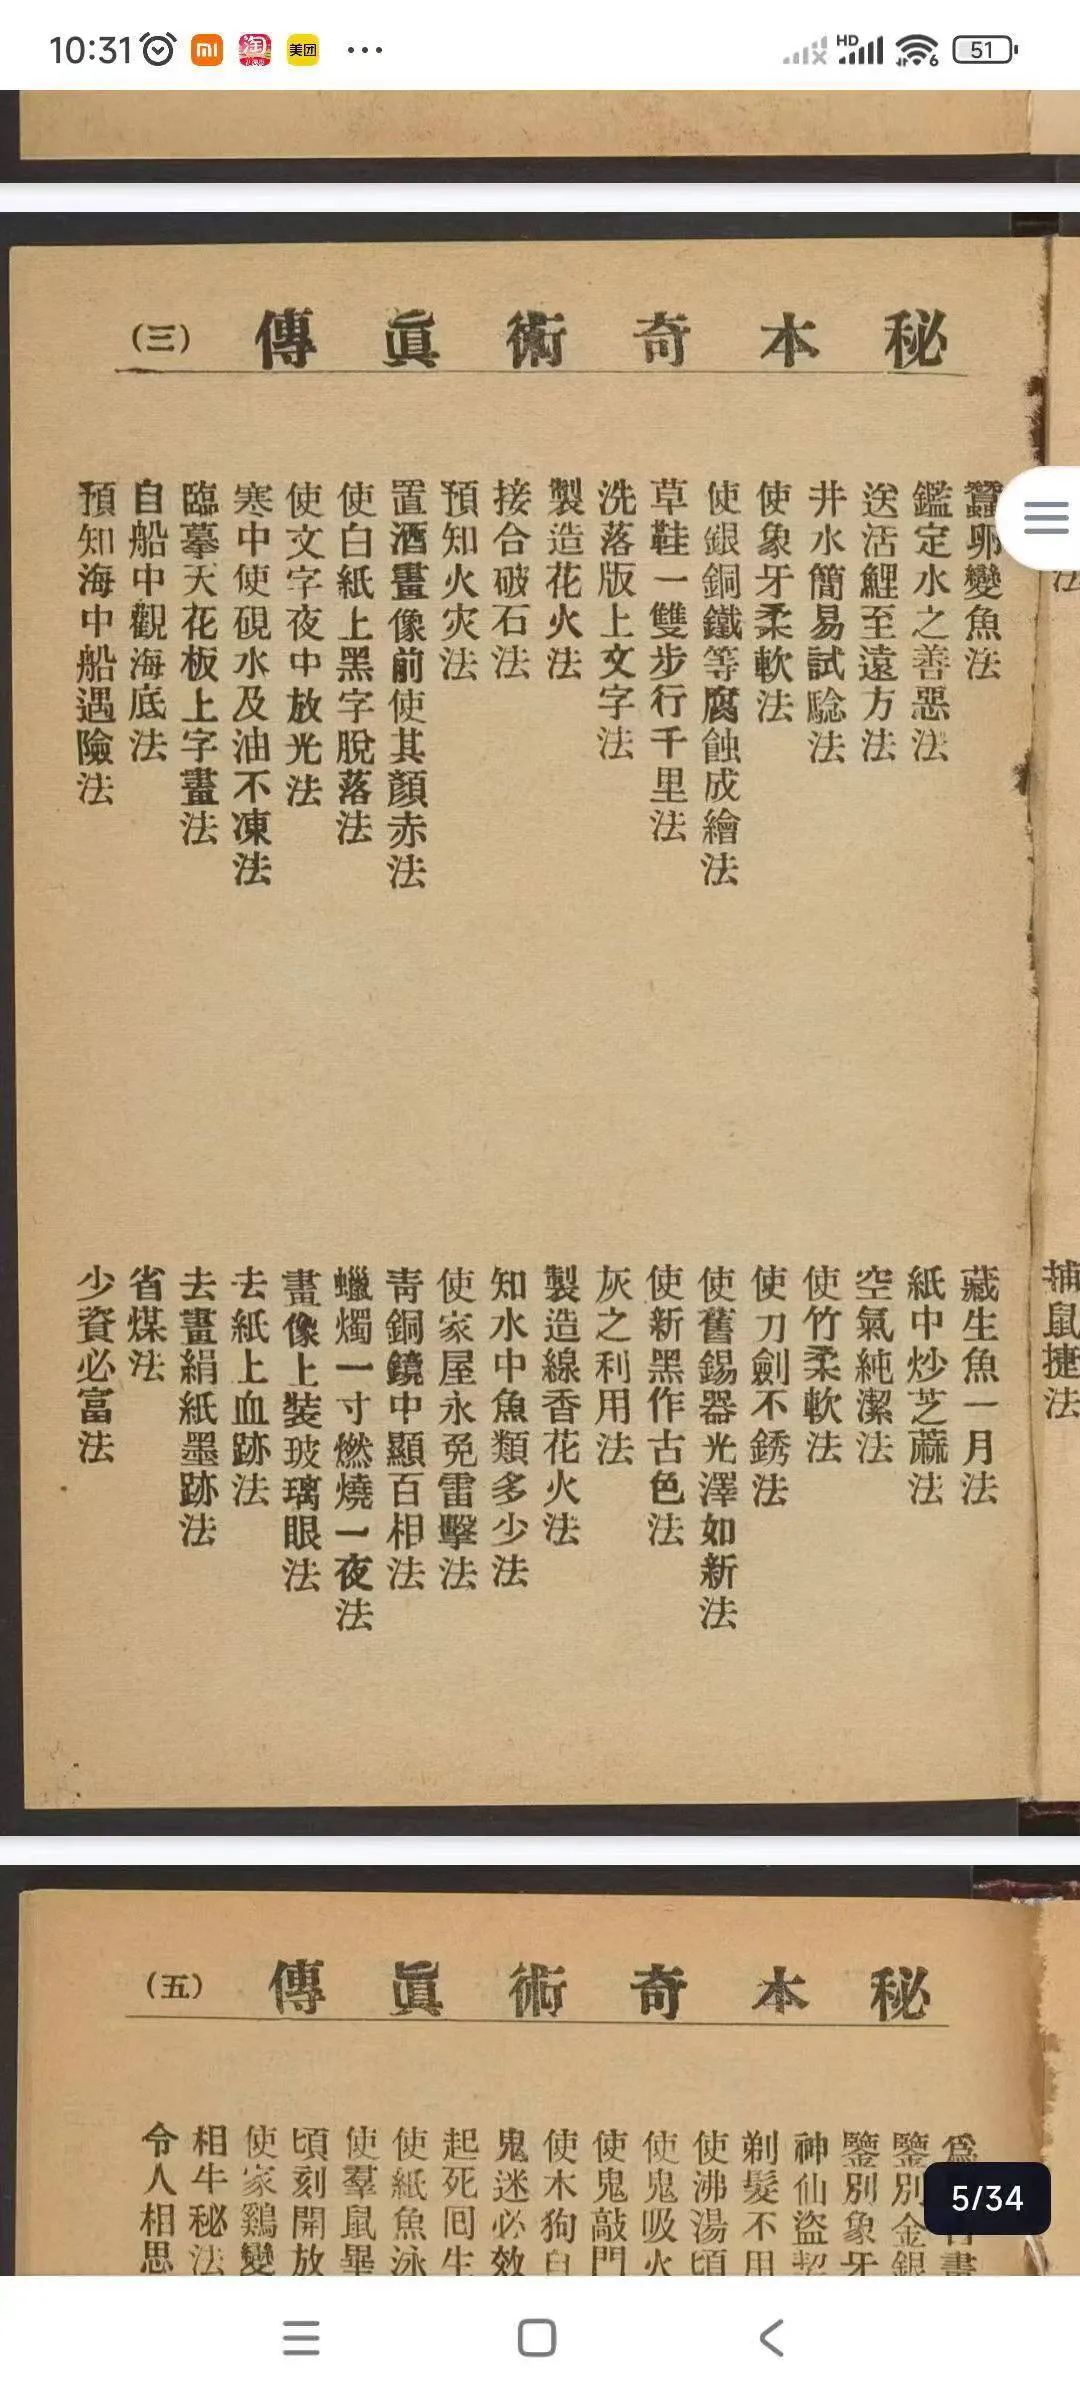 10:31
美团
HD
6
51
秘本奇術眞傳
(三)
法
蠶卵變魚法
鑑定水之善惡法
送活鯉至遠方法
井水簡易試驗法
使象牙柔軟法
使銀銅鐵等腐蝕成繪法
草鞋一雙步行千里法
洗落版上文字法
製造花火法
接合破石法
預知火灾法
置酒畫像前使其顏赤法
使白紙上黑字脫落法
使文字夜中放光法
寒中使硯水及油不凍法
臨摹天花板上字畫法
自船中觀海底法
預知海中船遇險法
捕鼠捷法
藏生魚一月法
紙中炒芝蔴法
空氣純潔法
使竹柔軟法
使刀劍不銹法
使舊錫器光澤如新法
使新黑作古色法
灰之利用法
製造線香花火法
知水中魚類多少法
使家屋永免雷擊法
靑銅鏡中顯百相法
蠟燭一寸燃燒一夜法
畫像上裝玻璃眼法
去紙上血跡法
去畫絹紙墨跡法
省煤法
少資必富法
秘本奇術眞傳
(五)
鑒別金銀
鑒別象牙
神仙盜
剃髮不用
使沸湯頃
使鬼吸火
使鬼敲門
使木狗自
鬼迷必效
起死回生
使紙魚泳
使羣鼠畢
頃刻開放
使家鷄變
相牛秘法
令人相思
5/34